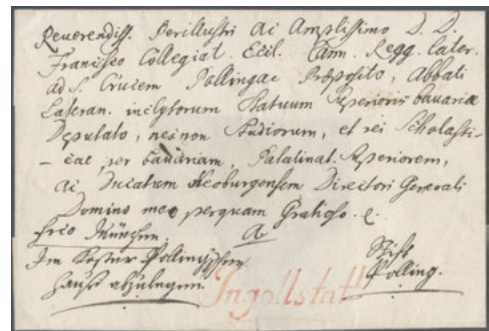 Reverendiss. Perillustri Ac Amplissimo D. D.
Francisco Collegiat. Eccl. Cann. Regg. Later.
ad S. Crucem Pollingae Praeposito, Abbati
Lateran. inclytorum Statuum Superioris bavariae
Deputato, necnon Studiorum, et rei Scholasti-
-cae per bavariam, Palatinat. Superiorem,
ac Ducatum Neoburgensem Directori Generali
Domino meo perquam Gratioso.
frco München. a
Im Closter Pollingischen Stift
Hauß abzulegen. Polling.
Ingollstatt